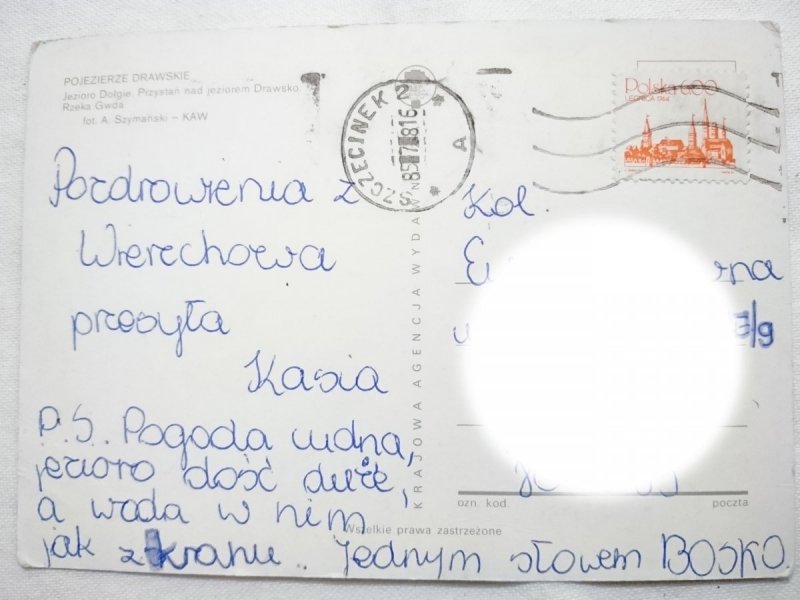 POJEZIERZE DRAWSKIE
Jezioro Dołgie. Przystań nad jeziorem Drawsko.
Rzeka Gwda
fot. A. Szymański – KAW
SZCZECINEK 2
A
Polska 600
LEGNICA 1744
Pozdrowienia z
Wierzchowa
przesyła
Kasia
P.S. Pogoda cudna,
jezioro dość duże,
a woda w nim
jak z kranu. Jednym słowem BOSKO
KRAJOWA AGENCJA WYDAWN
Kol.
ozn. kod.
poczta
Wszelkie prawa zastrzeżone